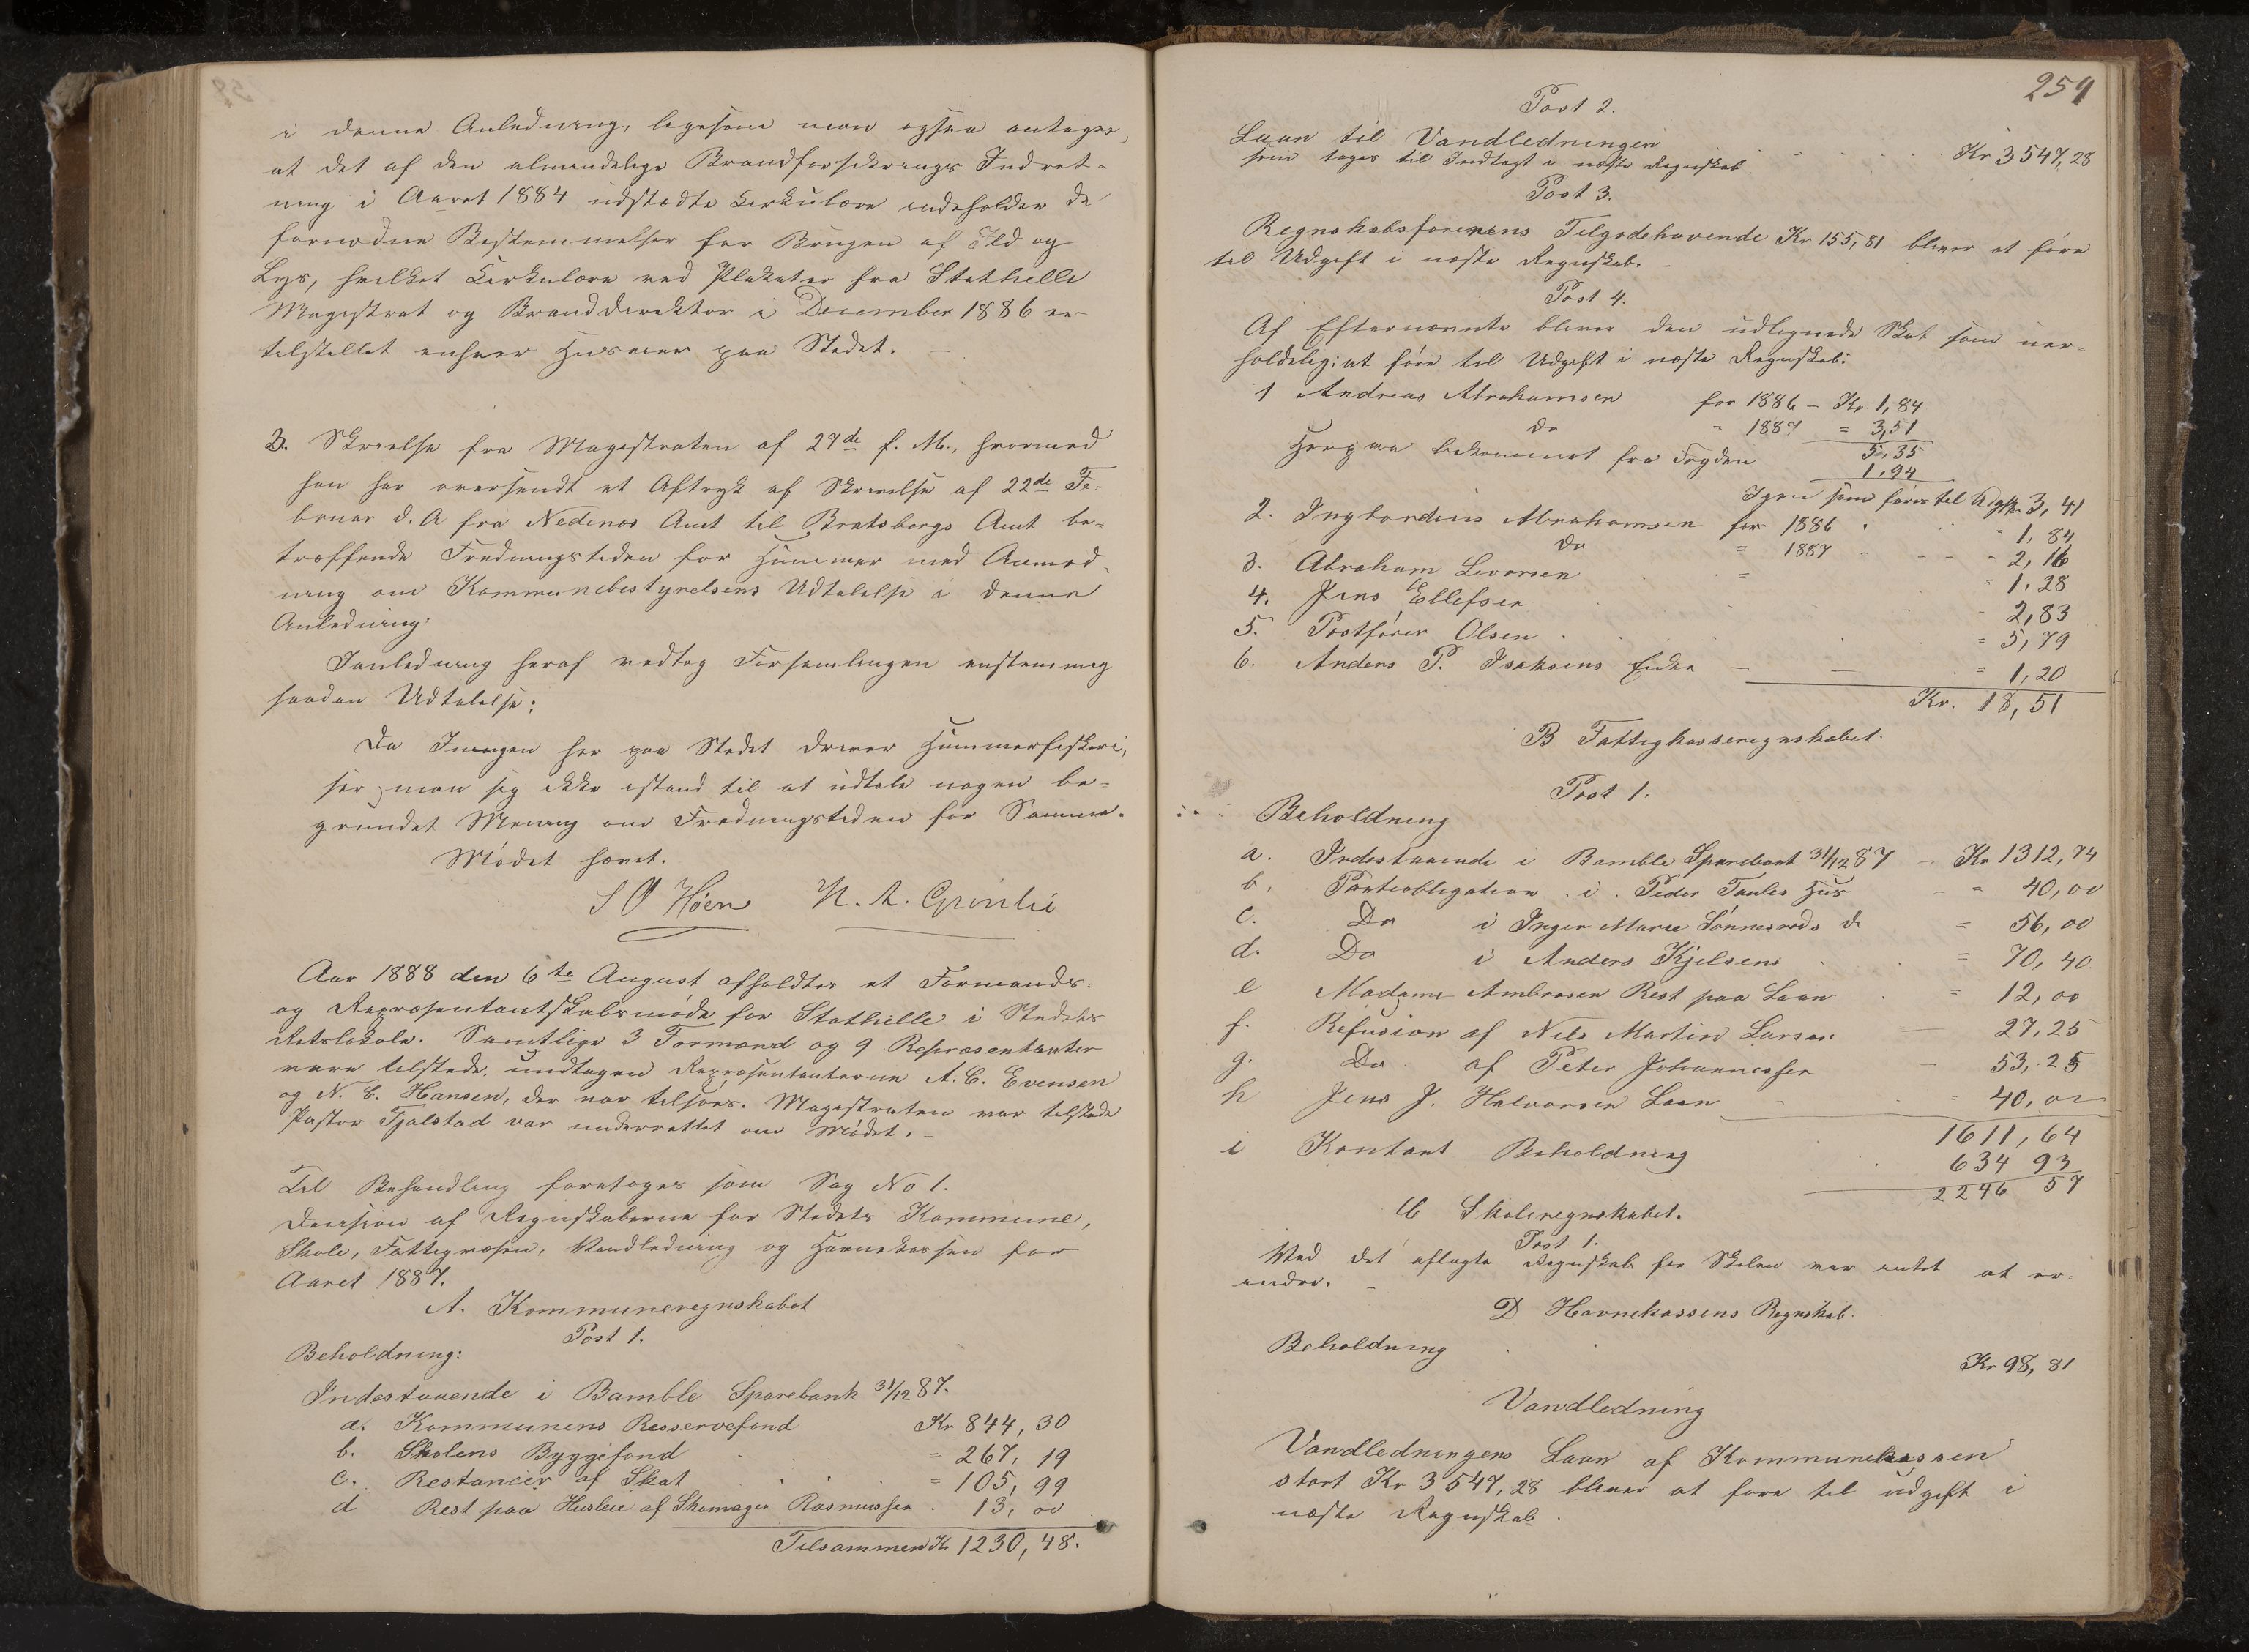 i denne Anledning, ligesom man ogsaa antager,
at det af den almindelige Brandforsikrings Indret-
ning i Aaret 1884 udstædte Cirkulære indeholder de
fornødne Bestemmelser for Brugen af Ild og
Lys, hvilket Cirkulære ved Plakater fra Stathelle
Magistrat og Branddirektør i December 1886 er
tilstillet enhver Huseier paa Stedet. –
3. Skrivelse fra Magistraten af 27de f. M., hvormed
han har oversendt et Aftryk af Skrivelse af 22de Fe-
bruar d. A fra Nedenæs Amt til Bratsbergs Amt be-
træffende Fredningstiden for Hummer med Anmod-
ning om Kommunebestyrelsens Udtalelse i denne
Anledning.
I anledning heraf vedtog Forsamlingen enstemmig
saadan Udtalelse:
Da Ingen her paa Stedet driver Hummerfiskeri,
ser man sig ikke istand til at udtale nogen be-
grundet Mening om Fredningstiden for Samme.
Mødet hævet.
S O Høen N. A. Grinlie
Aar 1888 den 6te August afholdtes et Formands-
og Repræsentantskabsmøde for Stathelle i Stedets
Retslokale. Samtlige 3 Formænd og 9 Repræsentanter
vare tilstede undtagen Repræsentanterne A. C. Evensen
og N. C. Hansen, der var tilsøes. Magistraten var tilstede
Pastor Tjalstad var underrettet om Mødet. –
Til Behandling foretoges som Sag No 1.
Decision af Regnskaberne for Stedets Kommune,
Skole, Fattigvæsen, Vandledning og Havnekassen for
Aaret 1887.
A. Kommuneregnskabet
Post 1.
Beholdning:
Indestaaende i Bamble Sparebank 31/12 87.
a. Kommunens Resservefond Kr 844, 30
b. Skolens Byggefond = 267, 19
c. Restancer af Skat = 105, 99
d Rest paa Husleie af Skomager Rasmussen . 13, 00
Tilsammen Kr 1230, 48.
259
Post 2.
Laan til Vandledningen
som tages til Indtægt i næste Regnskab. Kr 3547,28
Post 3.
Regnskabsførerens Tilgodehavende Kr 155,81 bliver at føre
til Udgift i næste Regnskab. –
Post 4.
Af Efternævnte bliver den udlignede Skat som uer-
holdelig at føre til Udgift i næste Regnskab:
1 Andreas Abrahamsen for 1886 – Kr. 1,84
do " 1887 = 3,51
5,35
Herpaa bekommet fra Fogden 1,94
Igjen som føres til Udgift Kr 3,41
2. Ingbordius Abrahamsen for 1886 " 1,84
do = 1887 - - - - 2,16
3. Abraham Levorsen = = 1,28
4. Jens Ellefsen - 2,83
5. Postfører Olsen = 5,79
6. Anders P. Isaksens Enke — — = 1,20
Kr. 18,51
B Fattigkasseregnskabet.
Post 1.
Beholdning
a. Indestaaende i Bamble Sparebank 31/12 87 – Kr 1312,74
b. Panteobligation i Peder Taules Hus - = 40,00
c. Do i Inger Marie Sønnerøds d = 56,00
d. Do i Anders Kjelsens = 70,40
e Madame Ambrosen Rest paa Laan = 12,00
f. Refusion af Nils Martin Larsen — 27,25
g. Do af Peter Johannessen — 53,25
h Jens J. Halvorsen Laan = 40,00
1611,64
i Kontant Beholdning 634 93
2246 57
C Skoleregnskabet.
Post 1.
Ved det aflagte Regnskab for Skolen var intet at er-
indre. –
D Havnekassens Regnskab.
Beholdning Kr 98,81
Vandledning
Vandledningens Laan af Kommunekassen
stort Kr 3547,28 bliver at føre til udgift i
næste Regnskab.